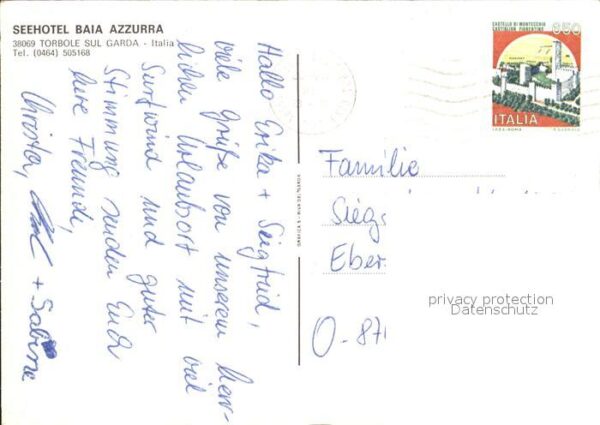 SEEHOTEL BAIA AZZURRA
38069 TORBOLE SUL GARDA - Italia
Tel. (0464) 505168
Hallo Erika + Siegfried,
viele Grüße von unserem herr-
lichen Urlaubsort mit viel
Surfwind und guter
Stimmung senden Euch
Eure Freunde,
Christa, + Sabine
CASTELLO DI MONTECCHIO
CASTIGLION FIORENTINO
650
ITALIA
I.P.Z.S. ROMA
Familie
Sieg
Eber
O-871
privacy protection
Datenschutz